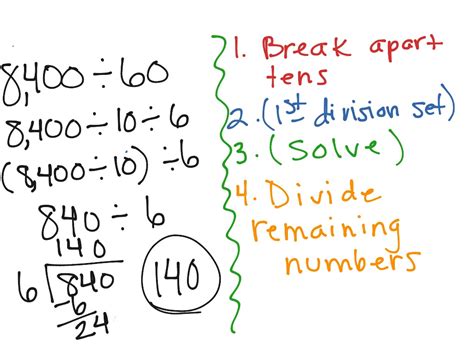 8,400 ÷ 60
8,400 ÷ 10 ÷ 6
(8,400 ÷ 10) ÷ 6
840 ÷ 6
140
6 840
140
-6
24
1. Break apart
tens
2. (1st division set)
3. (Solve)
4. Divide
remaining
numbers